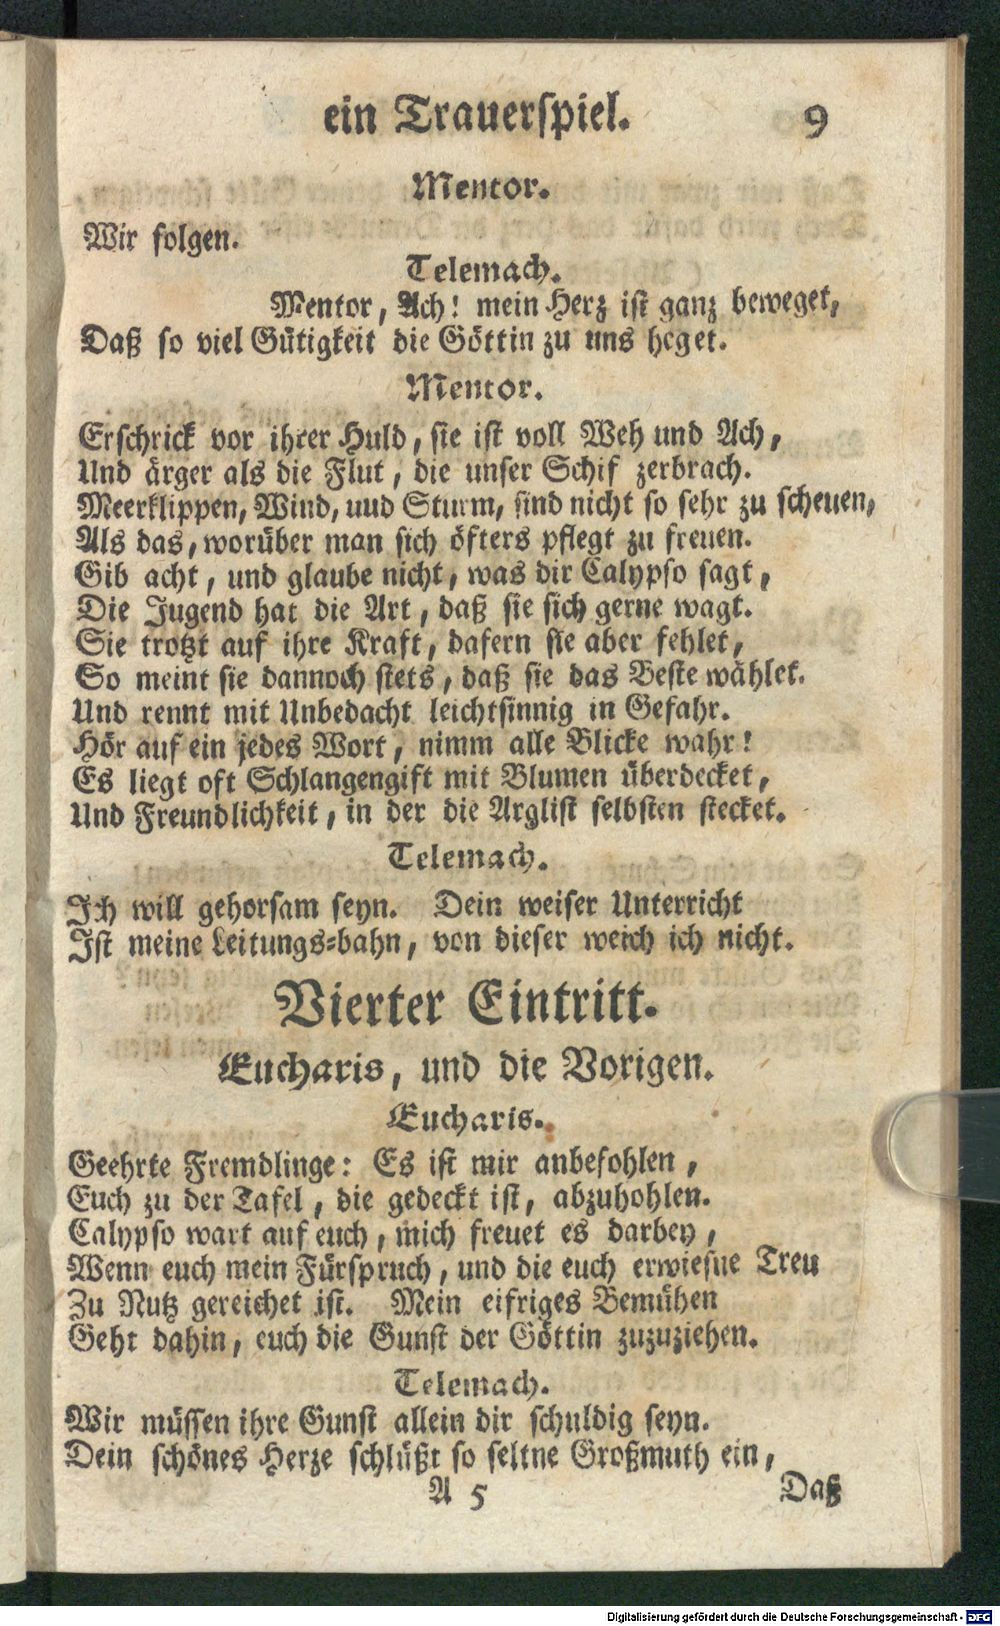 ein Trauerspiel. 9
Mentor.
Wir folgen.
Telemach.
Mentor, Ach! mein Herz ist ganz beweget,
Daß so viel Gütigkeit die Göttin zu uns heget.
Mentor.
Erschrick vor ihrer Huld, sie ist voll Weh und Ach,
Und ärger als die Flut, die unser Schif zerbrach.
Meerklippen, Wind, uud Sturm, sind nicht so sehr zu scheuen,
Als das, worüber man sich öfters pflegt zu freuen.
Gib acht, und glaube nicht, was dir Calypso sagt,
Die Jugend hat die Art, daß sie sich gerne wagt.
Sie trotzt auf ihre Kraft, dafern sie aber fehlet,
So meint sie dannoch stets, daß sie das Beste wählet.
Und rennt mit Unbedacht leichtsinnig in Gefahr.
Hör auf ein jedes Wort, nimm alle Blicke wahr!
Es liegt oft Schlangengift mit Blumen überdecket,
Und Freundlichkeit, in der die Arglist selbsten stecket.
Telemach.
Ich will gehorsam seyn. Dein weiser Unterricht
Ist meine Leitungs-bahn, von dieser weich ich nicht.
Vierter Eintritt.
Eucharis, und die Vorigen.
Eucharis.
Geehrte Fremdlinge: Es ist mir anbefohlen,
Euch zu der Tafel, die gedeckt ist, abzuhohlen.
Calypso wart auf euch, mich freuet es darbey,
Wenn euch mein Fürspruch, und die euch erwiesne Treu
Zu Nutz gereichet ist. Mein eifriges Bemühen
Geht dahin, euch die Gunst der Göttin zuzuziehen.
Telemach.
Wir müssen ihre Gunst allein dir schuldig seyn.
Dein schönes Herze schlüßt so seltne Großmuth ein,
A 5 Daß
Digitalisierung gefördert durch die Deutsche Forschungsgemeinschaft - DFG